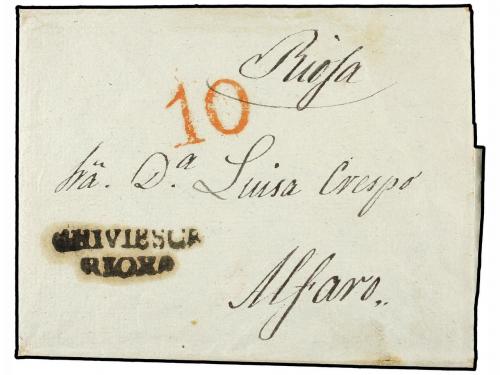 Rioja
10
Sra. Da. Luisa Crespo
BRIVIESCA
RIOXA
Alfaro.